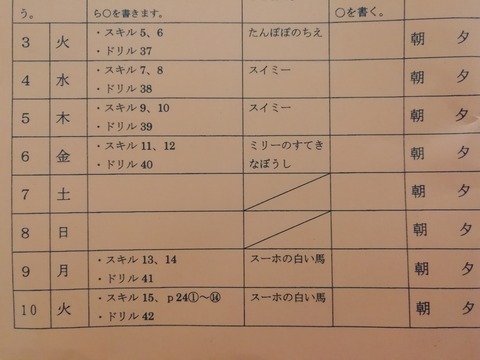 う。 ら〇を書きます。 〇を書く。
3 火 ・スキル5、6 たんぽぽのちえ 朝 夕
・ドリル37
4 水 ・スキル7、8 スイミー 朝 夕
・ドリル38
5 木 ・スキル9、10 スイミー 朝 夕
・ドリル39
6 金 ・スキル11、12 ミリーのすてき 朝 夕
・ドリル40 なぼうし
7 土 朝 夕
8 日 朝 夕
9 月 ・スキル13、14 スーホの白い馬 朝 夕
・ドリル41
10 火 ・スキル15、p24①～⑭ スーホの白い馬 朝 夕
・ドリル42